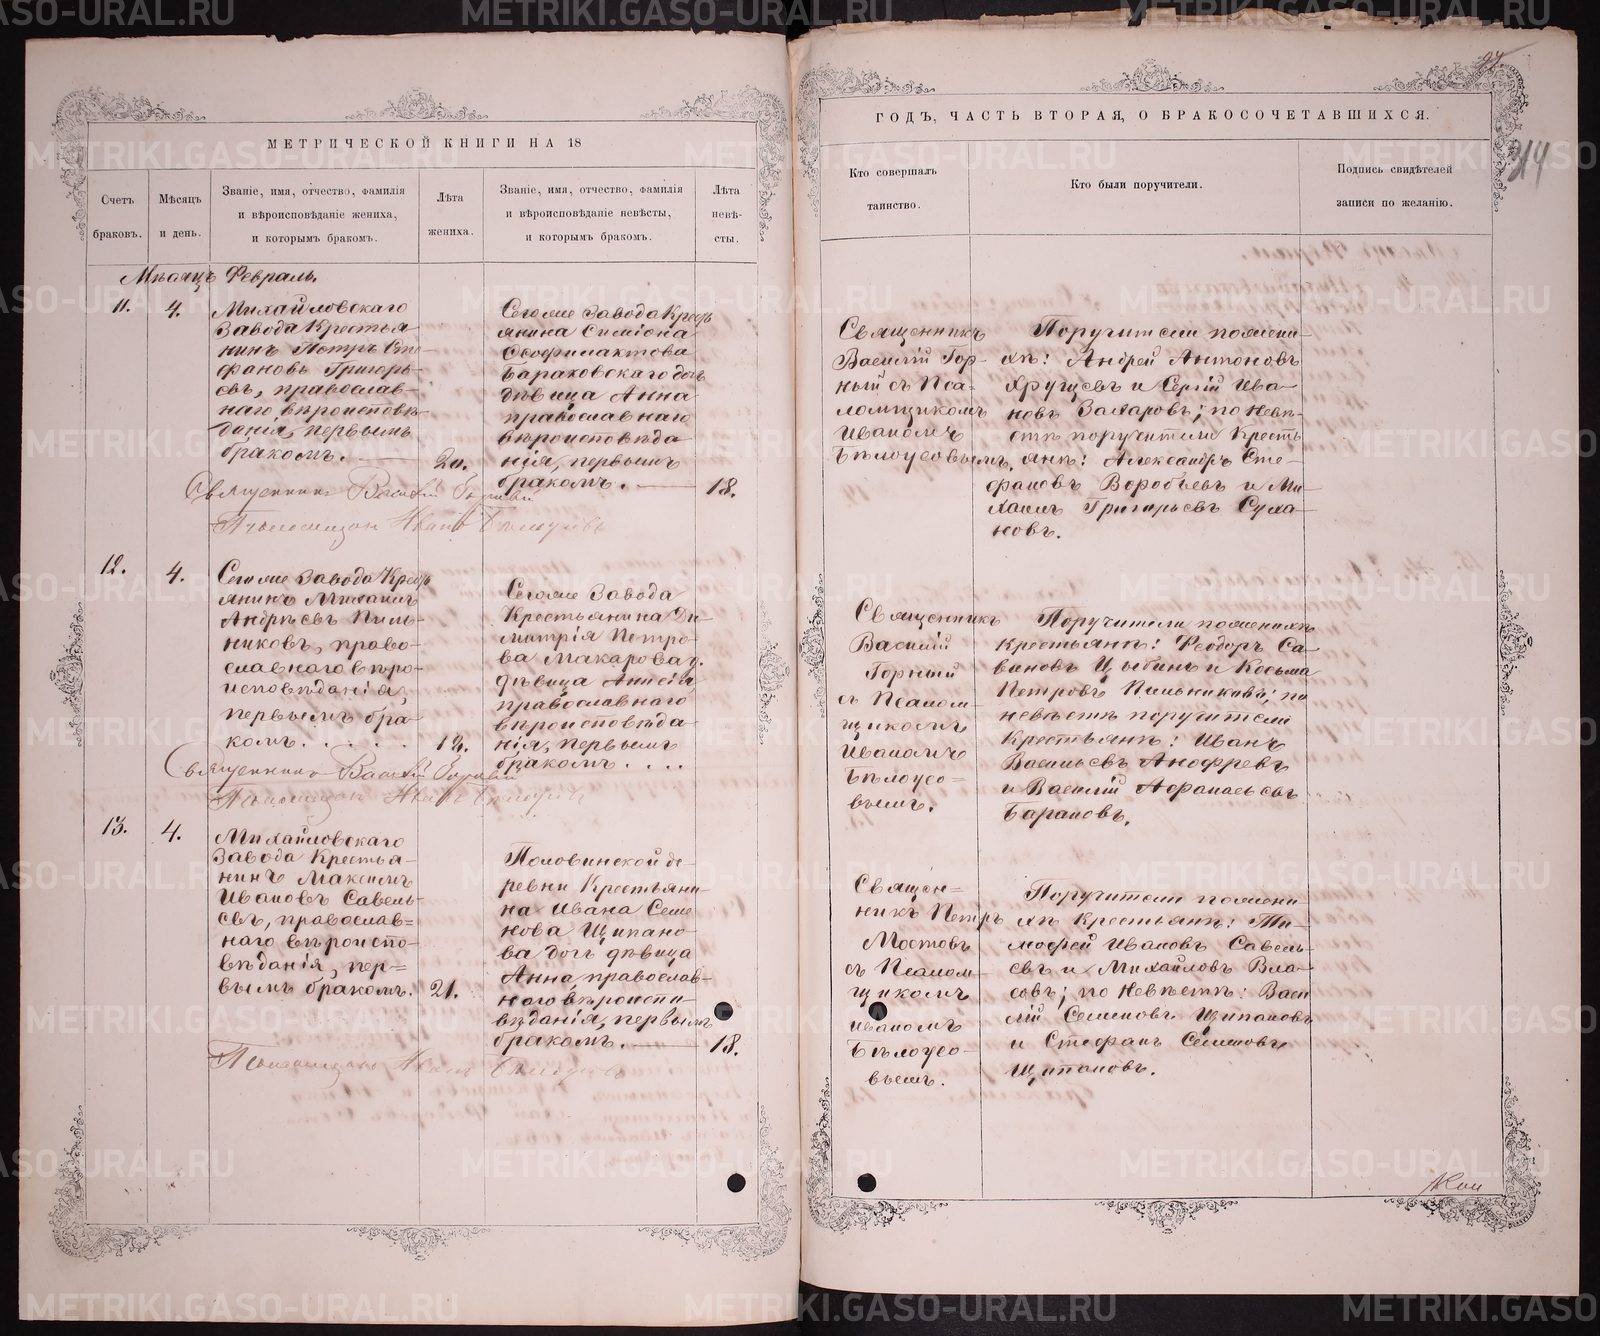 МЕТРИЧЕСКОЙ КНИГИ НА 18
Счетъ
браковъ.
Мѣсяцъ
и день.
Званіе, имя, отчество, фамилія
и вѣроисповѣданіе жениха,
и которымъ бракомъ.
Лѣта
жениха.
Званіе, имя, отчество, фамилія
и вѣроисповѣданіе невѣсты,
и которымъ бракомъ.
Лѣта
невѣ-
сты.
Мѣсяцъ Февраль.
11.
4.
Михайловскаго
Завода Крестья
нинъ Петръ Сте-
фановъ Григорь-
евъ, православ-
наго вѣроисповѣ-
данія, первымъ
бракомъ.
20.
Сегоже Завода Кресть
янина Симіона
Ѳеофилактова
Бараковскаго дочь
дѣвица Анна
православнаго
вѣроисповѣда
нія, первымъ
бракомъ.
18.
Священникъ Василій Горный
Псаломщикъ Иванъ Бѣлоусовъ
12.
4.
Сегоже Завода Кресть
янинъ Михаилъ
Андреевъ Пиль-
никовъ, право-
славнаго вѣро-
исповѣданія,
первымъ бра-
комъ.
18.
Сегоже Завода
Крестьянина Ди-
митрія Петро-
ва Макарова д.
дѣвица Анисія
православнаго
вѣроисповѣда-
нія, первымъ
бракомъ.
Священникъ Василій Горный
Псаломщикъ Иванъ Бѣлоусовъ
13.
4.
Михайловскаго
Завода Крестья-
нинъ Максимъ
Ивановъ Савель-
евъ, православ-
наго вѣроиспо-
вѣданія, пер-
вымъ бракомъ.
21.
Половинской де-
ревни Крестьяни-
на Ивана Семе
нова Щипано-
ва дочь дѣвица
Анна, православ-
наго вѣроиспо-
вѣданія, первымъ
бракомъ.
18.
Псаломщикъ Иванъ Бѣлоусовъ
ГОДЪ, ЧАСТЬ ВТОРАЯ, О БРАКОСОЧЕТАВШИХСЯ.
314
Кто совершалъ
таинство.
Кто были поручители.
Подпись свидѣтелей
записи по желанію.
Священникъ
Василій Гор-
ный съ Пса-
ломщикомъ
Иваномъ
Бѣлоусовымъ.
Поручители по жени-
хѣ: Андрей Антоновъ
и Сергій Ива-
новъ Захаровъ; по Невѣ-
стѣ поручители Кресть
янѣ: Александръ Сте-
фановъ Воробьевъ и Ми-
хаилъ Григорьевъ Суха-
новъ.
Священникъ
Василій
Горный
съ Псалом-
щикомъ
Иваномъ
Бѣлоусо-
вымъ.
Поручители по женихѣ
Крестьянѣ: Феодоръ Са-
виновъ Цыбинъ и Косьма
Петровъ Пильниковъ; по
невѣстѣ поручители
Крестьянѣ: Иванъ
Васильевъ Анофревъ
и Василій Афанасьевъ
Барановъ.
Священ-
никъ Петръ
Мостовъ
съ Псалом-
щикомъ
Иваномъ
Бѣлоусо-
вымъ.
Поручители по жени
хѣ Крестьянѣ: Ти-
мофей Ивановъ Савель-
евъ и Михайловъ Вла-
совъ; по Невѣстѣ: Васи
лій Семеновъ Щипановъ
и Стефанъ Семеновъ
Щипановъ.
METRIKI.GASO-URAL.RU